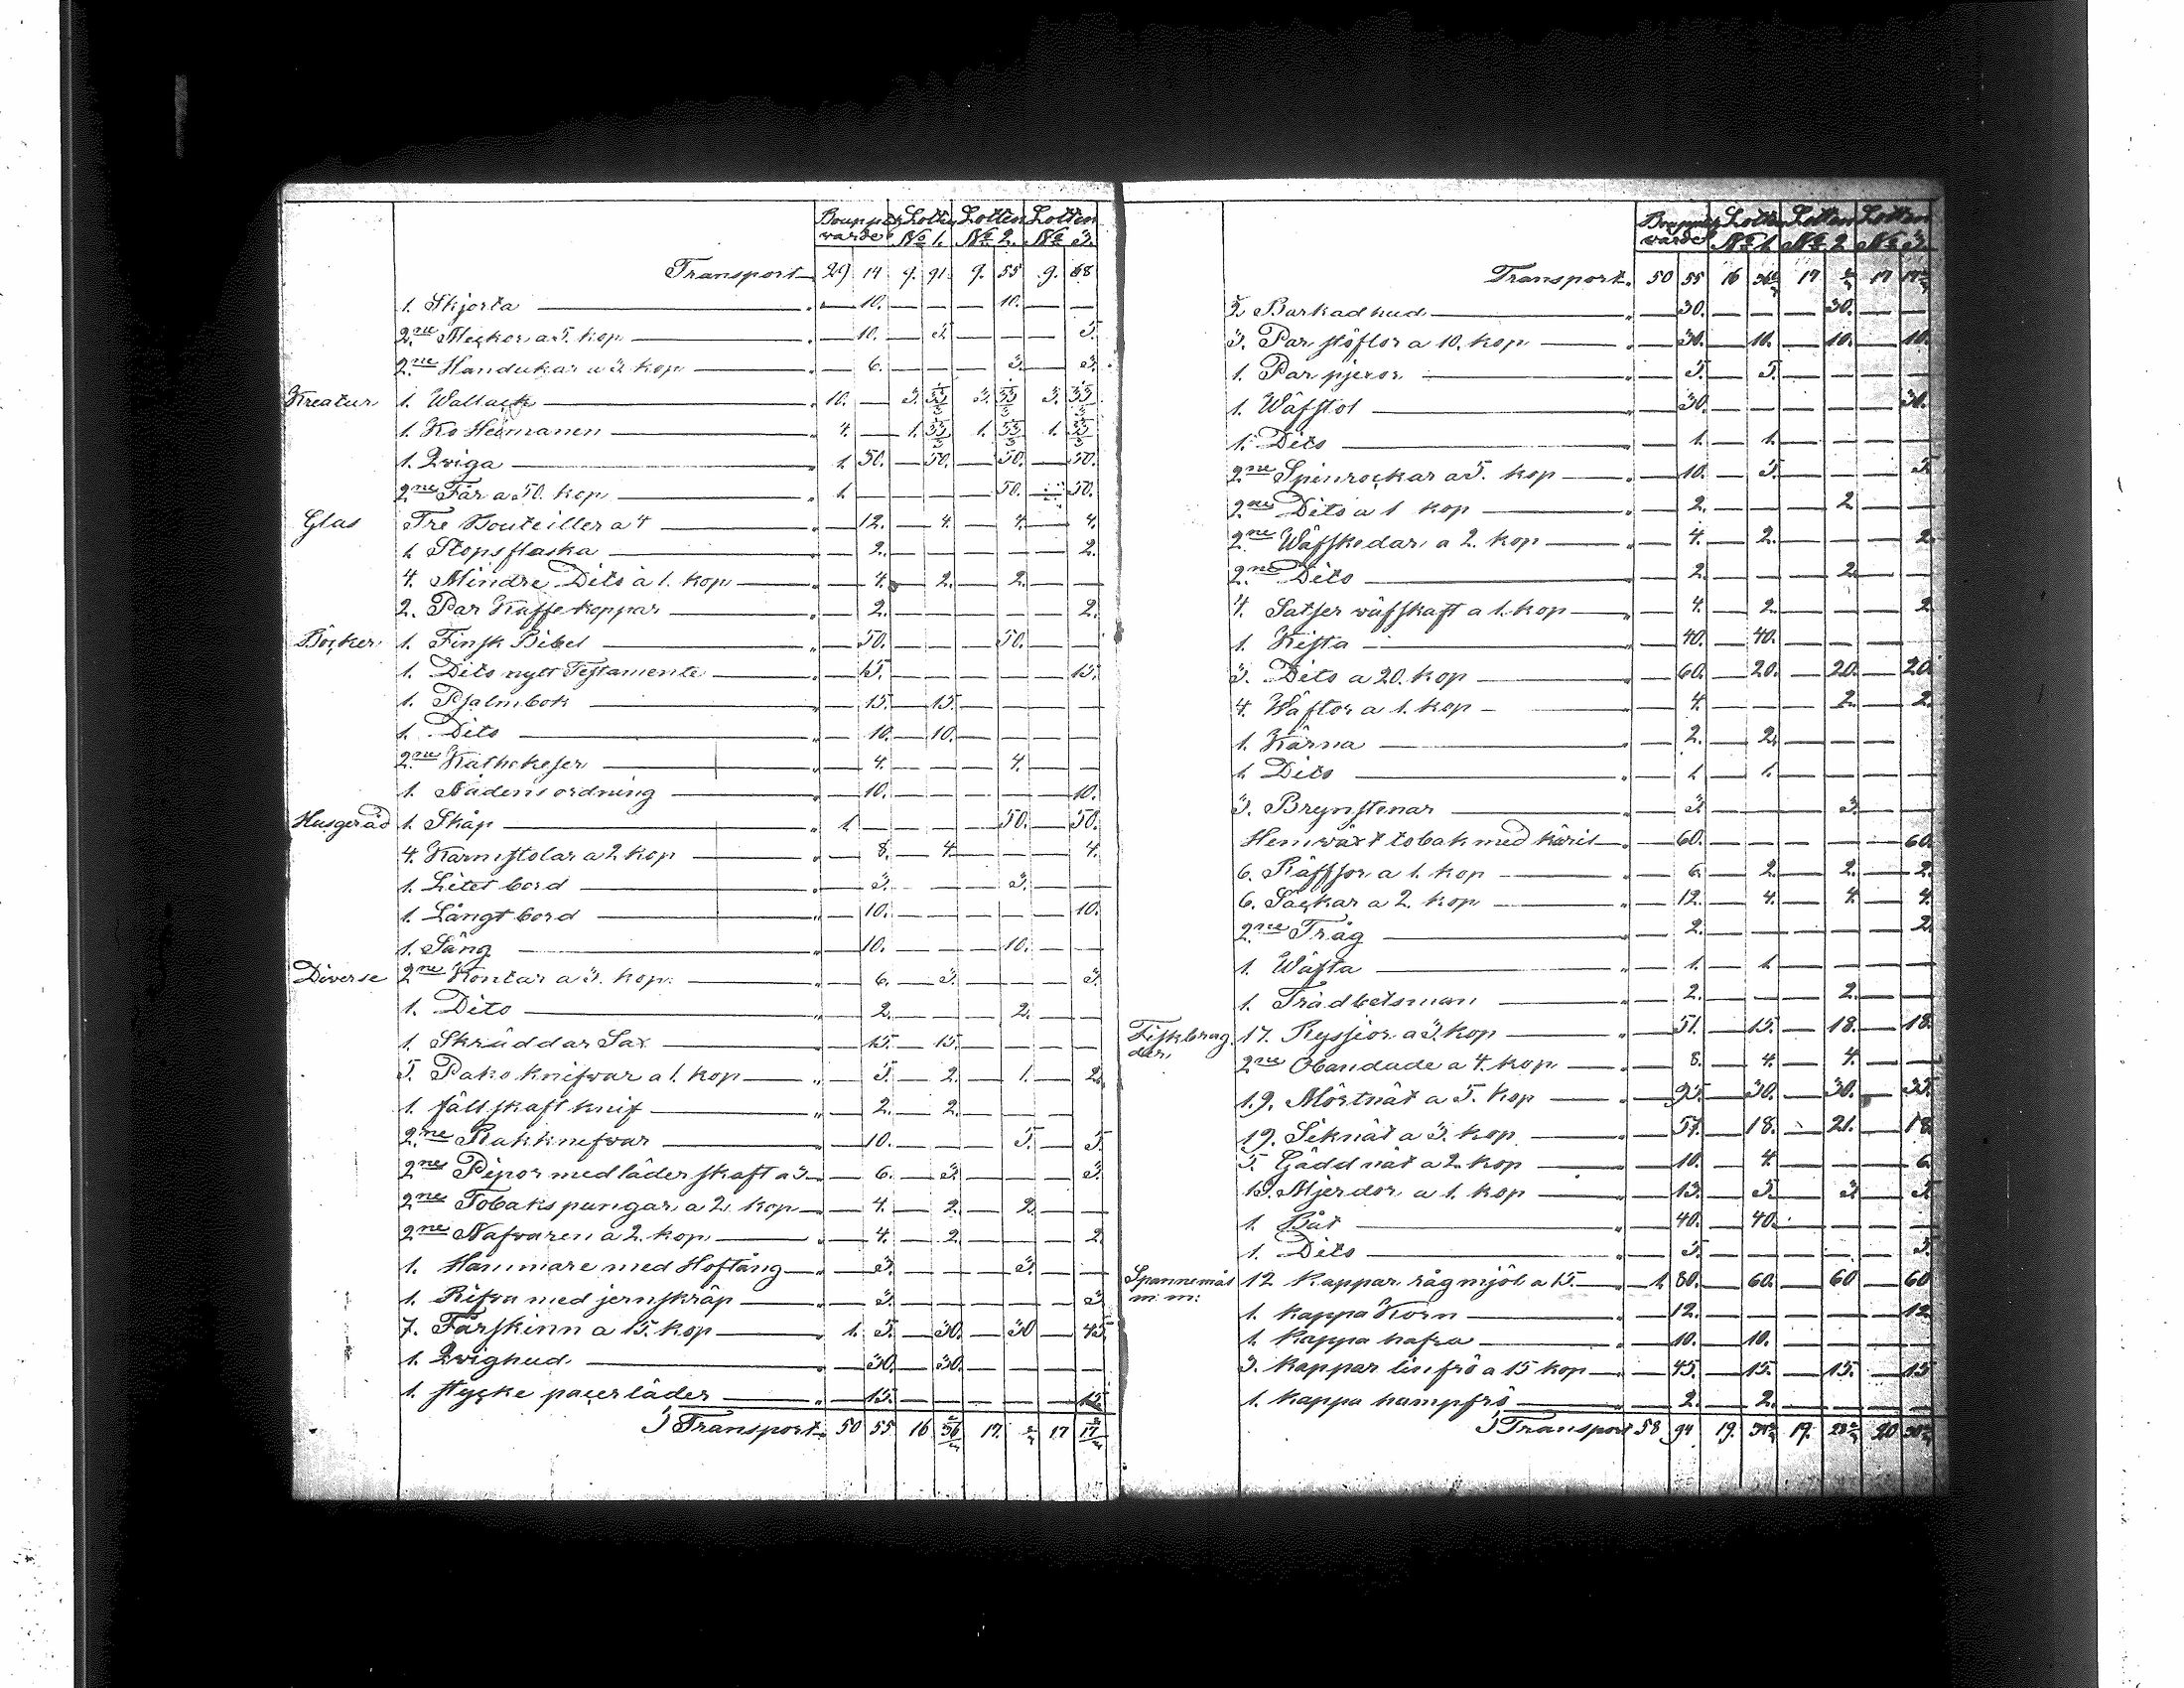 Bouppt: Lotten Lotten Lotten
värde № 1. № 2. № 3.
Transport 29 14 9. 91. 9. 55 9. 68
1. Skjorta " — 10. — — — 10. — —
2ne Säckar a 5. kop " — 10. — 5. — — — 5.
2ne Handukar a 3. kop " — 6. — — — 3. — 3.
Kreatur 1. Wallack " 10. — 3. 33 1/3 3. 33 1/3 3. 33 1/3
1. Ko Heimanen " 4. — 1. 33 1/3 1. 33 1/3 1. 33 1/3
1. Qviga " 1. 50. — 50. — 50. — 50.
2ne Får a 50. kop " 1. — — — — 50. — 50.
Glas Tre Bouteiller a 4 " — 12. — 4. — 4. — 4.
1. Stopsflaska " — 2. — — — — — 2.
4. Mindre Dito à 1. kop " — 4. — 2. — 2. — —
2. Par Kaffekoppar " — 2. — — — — — 2.
Böcker 1. Finsk Bibel " — 50. — — — 50. — —
1. Dito nytt Testamente " — 15. — — — — — 15.
1. Psalmbok " — 15. — 15. — — — —
1. Dito " — 10. — 10. — — — —
2ne Kathekeser " — 4. — — — 4. — —
1. Nådens ordning " — 10. — — — — — 10.
Husgeråd 1. Skåp " 1. — — — — 50. — 50.
4. Karmstolar a 2 kop " — 8. — 4. — — — 4.
1. Litet bord " — 3. — — — 3. — —
1. Långt bord " — 10. — — — — — 10.
1. Säng " — 10. — — — 10. — —
Diverse 2ne Kontar a 3. kop. " — 6. — 3. — — — 3.
1. Dito " — 2. — — — 2. — —
1. Skräddar Sax " — 15. — 15. — — — —
5. Pako knifvar a 1. kop " — 5. — 2. — 1. — 2.
1. fällskaft knif " — 2. — 2. — — — —
2ne Rakknifvar " — 10. — — — 5. — 5.
2ne Pipor med läderskaft a 3 " — 6. — 3. — — — 3.
2ne Tobakspungar a 2. kop " — 4. — 2. — 2. — —
2ne Nafvaren a 2. kop " — 4. — 2. — — — 2.
1. Hammare med Hoftång " — 3. — — — 3. — —
1. Rifva med jernskräp " — 3. — — — — — 3
7. Fårskinn a 15. kop " 1. 5. — 30. — 30 — 45.
1. Qvighud " — 30. — 30. — — — —
1. stycke läder " — 15. — — — — — 15.
Transport 50 55 16 36 2/3 17. 17
Bouppt: Lotten Lotten Lotten
värde № 1. № 2. № 3.
Transport. 50 55 16 36 2/3 17 17
Barkad hud " — 30. — — — 30. — —
3. Par stöflor a 10. kop " — 30. — 10. — 10. — 10
1. Par pjexor " — 5. — 5. — — — —
1. Wäfstol " — 30. — — — — — 30.
1. Dito " — 1. — 1. — — — —
2ne Spinrockar a 5. kop " — 10. — 5. — — — 5.
2ne Dito a 1 kop " — 2. — — — 2. — —
2ne Wäfskedar a 2. kop " — 4. — 2. — — — 2.
2ne Dito " — 2. — — — 2. — —
4. Satser wäfskaft a 1. kop " — 4. — 2. — — — 2
1. Kista " — 40. — 40. — — — —
3. Dito a 20. kop " — 60. — 20. — 20. — 20
4. Wäftor a 1. kop " — 4. — — — 2. — 2.
1. Kärna " — 2. — 2. — — — —
1. Dito " — 1. — 1. — — — —
3. Brynstenar " — 3. — — — 3. — —
Hemväxt tobak med käril " — 60. — — — — — 60.
6. Räfsor a 1. kop " — 6. — 2. — 2. — 2.
6. Säckar a 2. kop " — 12. — 4. — 4. — 4.
2ne Tråg " — 2. — — — — — 2.
1. Wäfta " — 1. — 1. — — — —
1. Trädbetsman " — 2. — — — 2. — —
Fiskbrag
der, 17. Ryssior a 3. kop " — 51. — 15. — 18. — 18.
2ne Obandade a 4. kop " — 8. — 4. — 4. — —
19. Mörtnät a 5. kop " — 95. — 30. — 30. — 35.
19. Siknät a 3. kop " — 57. — 18. — 21. — 18
5. Gäddnät a 2. kop " — 10. — 4. — — — 6
13. Mjerdor a 1. kop " — 13. — 5. — 3. — 5.
1. Båt " — 40. — 40. — — — —
1. Dito " — 5. — — — — — 5.
Spannemål
m: m: 12 Kappar rågmjöl a 15. 1. 80. — 60. — 60 — 60
1. kappa Korn " — 12. — — — — — 12
1. Kappa hafra " — 10. — 10. — — — —
3. Kappar linfrö a 15 kop " — 45. — 15. — 15. — 15
1. Kappa hampfrö " — 2. — 2. — — — —
Transport 58 94 19. 19. 20